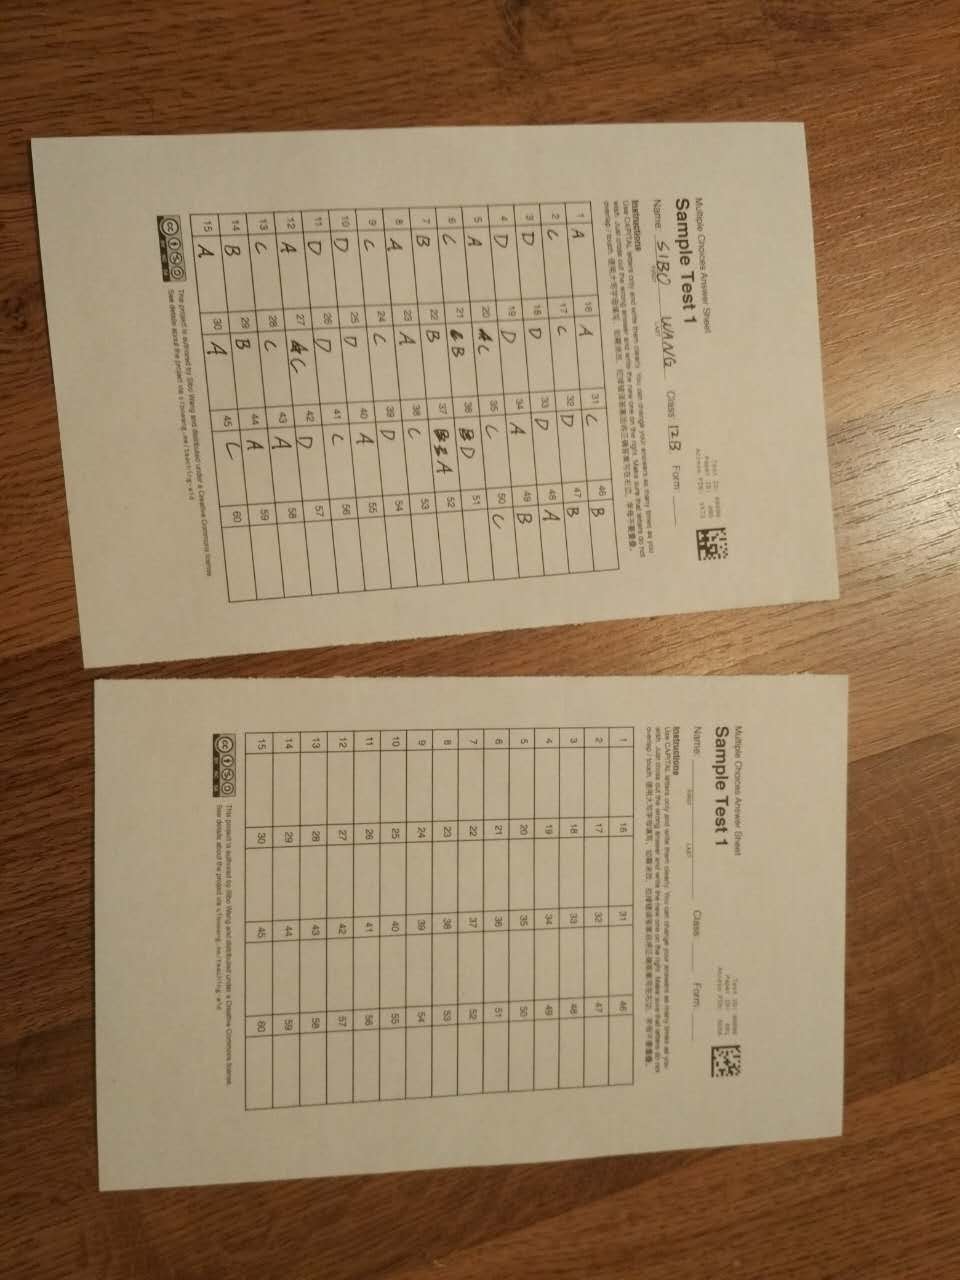 Multiple Choices Answer Sheet
Sample Test 1
Name: SIBO WANG Class: 12B Form:
FIRST LAST
Test ID:
Paper ID:
Access PIN:
Instructions
Use CAPITAL letters only and write them clearly. You can change your answers as many times as you
wish. Just cross out the wrong answer and write the new one on the right. Make sure that letters do not
overlap / touch.
1 A 16 A 31 C 46 B
2 C 17 C 32 D 47 B
3 D 18 D 33 D 48 A
4 D 19 D 34 A 49 B
5 A 20 C 35 C 50 C
6 C 21 B 36 D 51
7 B 22 B 37 A 52
8 A 23 A 38 C 53
9 C 24 C 39 D 54
10 D 25 D 40 A 55
11 D 26 D 41 C 56
12 A 27 C 42 D 57
13 C 28 C 43 A 58
14 B 29 B 44 A 59
15 A 30 A 45 C 60
This project is authored by Sibo Wang and distributed under a Creative Commons license.
See details about the project via sibowang.me/teaching-aid
Multiple Choices Answer Sheet
Sample Test 1
Name: Class: Form:
FIRST LAST
Test ID:
Paper ID:
Access PIN:
Instructions
Use CAPITAL letters only and write them clearly. You can change your answers as many times as you
wish. Just cross out the wrong answer and write the new one on the right. Make sure that letters do not
overlap / touch.
1 16 31 46
2 17 32 47
3 18 33 48
4 19 34 49
5 20 35 50
6 21 36 51
7 22 37 52
8 23 38 53
9 24 39 54
10 25 40 55
11 26 41 56
12 27 42 57
13 28 43 58
14 29 44 59
15 30 45 60
This project is authored by Sibo Wang and distributed under a Creative Commons license.
See details about the project via sibowang.me/teaching-aid